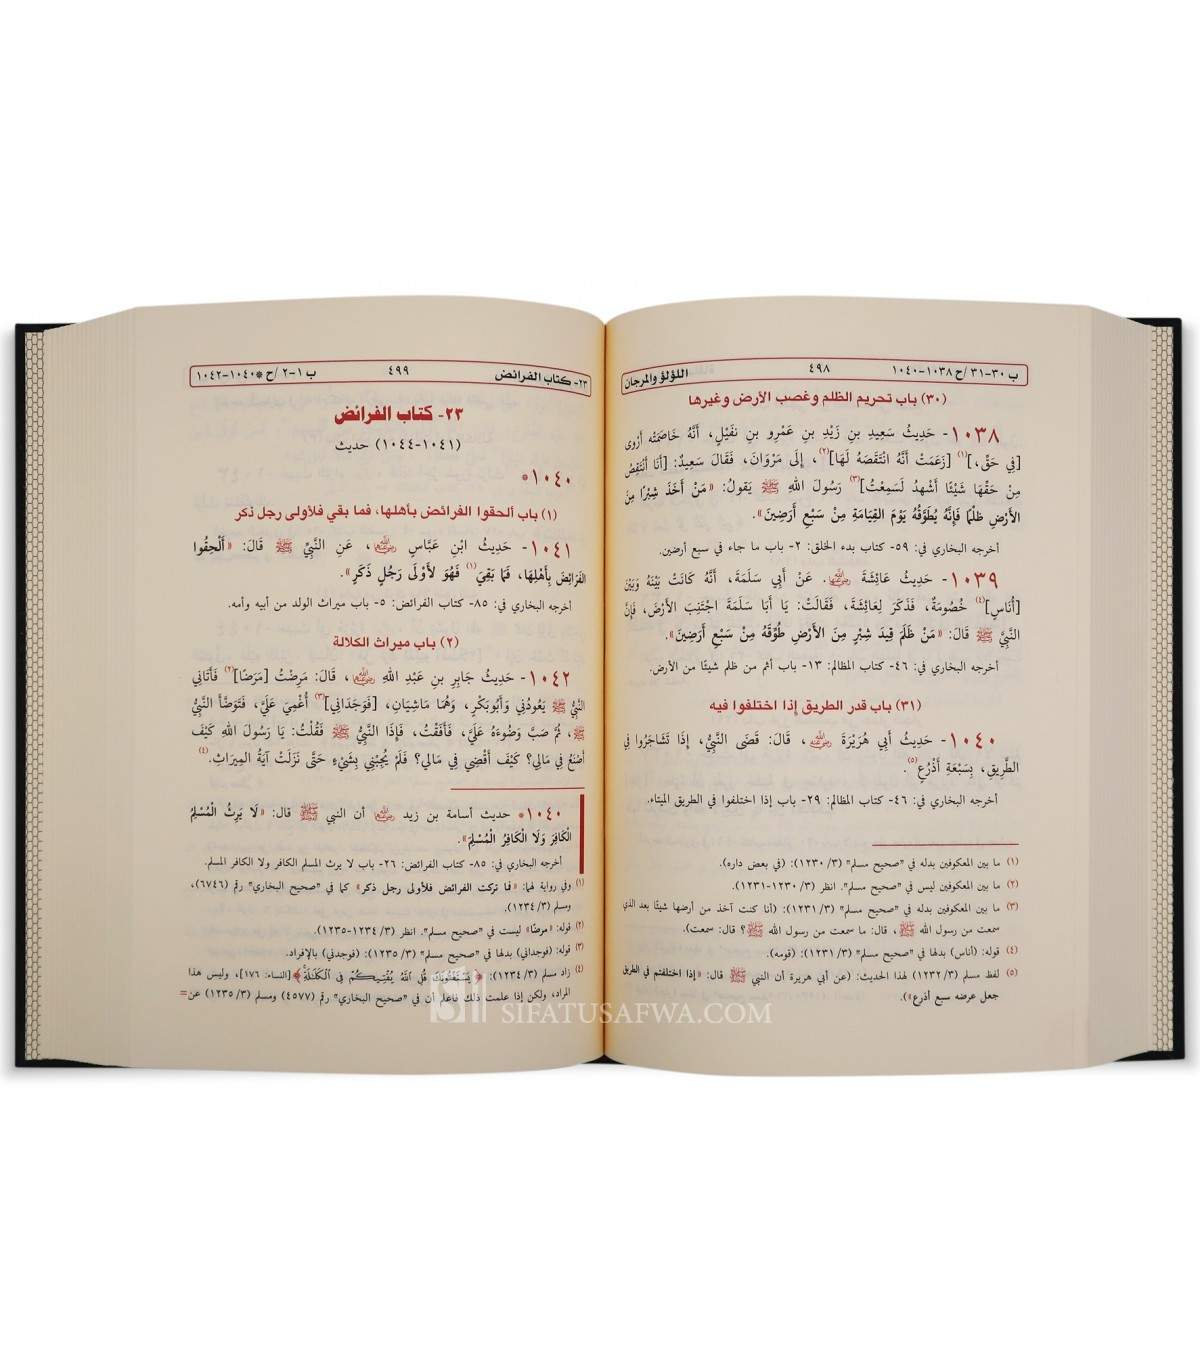 ب ٣٠-٣١ /ح ١٠٣٨-١٠٤٠
٤٩٨
اللؤلؤ والمرجان
(٣٠) باب تحريم الظلم وغصب الأرض وغيرها
١٠٣٨- حَدِيثُ سَعِيدِ بنِ زَيْدِ بنِ عَمْرِو بنِ نفَيْلٍ، أَنَّهُ خَاصَمَتْه أَرْوى
[فِي حَقّ،](١) [زَعَمَتْ أَنَّهُ انْتَقَصَهُ لَهَا](٢)، إِلَى مَرْوَانَ، فَقَالَ سَعِيدٌ: [أَنَا أَنْتَقِصُ
مِنْ حَقِّهَا شَيْئًا أَشْهدُ لَسَمِعْتُ](٣) رَسُولَ اللهِ ﷺ يَقولُ: «مَنْ أَخَذَ شِبْرًا مِنَ
الأَرْضِ ظلْمًا فَإِنَّهُ يُطَوَّقُهُ يَوْمَ القِيَامَةِ مِنْ سَبْعِ أَرَضِينَ».
أخرجه البخاري في: ٥٩- كتاب بدء الخلق: ٢- باب ما جاء في سبع أرضين.
١٠٣٩- حَدِيثُ عَائِشَةَ رضي الله عنها. عَنْ أَبِي سَلَمَةَ، أَنَّهُ كَانَتْ بَيْنَهُ وَبَيْنَ
[أُنَاسٍ](٤) خُصُومَةٌ، فَذَكَرَ لِعَائِشَةَ، فَقَالَتْ: يَا أَبَا سَلَمَةَ اجْتَنِبَ الأَرْضَ، فَإِنَّ
النَّبِيَّ ﷺ قَالَ: «مَنْ ظَلَمَ قِيدَ شِبْرٍ مِنَ الأَرْضِ طُوِّقَهُ مِنْ سَبْعِ أَرَضِينَ».
أخرجه البخاري في: ٤٦- كتاب المظالم: ١٣- باب أثم من ظلم شيئًا من الأرض.
(٣١) باب قدر الطريق إذا اختلفوا فيه
١٠٤٠- حَدِيثُ أَبِي هُرَيْرَةَ رضي الله عنه، قَالَ: قَضَى النَّبِيُّ، إِذَا تَشَاجَرُوا فِي
الطَّرِيقِ، بِسَبْعَةِ أَذْرُعٍ(٥).
أخرجه البخاري في: ٤٦- كتاب المظالم: ٢٩- باب إذا اختلفوا في الطريق الميتاء.
(١) ما بين المعكوفين بدله في "صحيح مسلم" (٣/ ١٢٣٠): (في بعض داره).
(٢) ما بين المعكوفين ليس في "صحيح مسلم". انظر (٣/ ١٢٣٠-١٢٣١).
(٣) ما بين المعكوفين بدله في "صحيح مسلم" (٣/ ١٢٣١): (أنا كنت آخذ من أرضها شيئًا بعد الذي
سمعت من رسول الله ﷺ، قال: ما سمعت من رسول الله ﷺ؟ قال: سمعت).
(٤) قوله: (أناس) بدلها في "صحيح مسلم" (٣/ ١٢٣١): (قومه).
(٥) لفظ مسلم (٣/ ١٢٣٢) لهذا الحديث: (عن أبي هريرة أن النبي ﷺ قال: «إذا اختلفتم في الطريق
جعل عرضه سبع أذرع»).
٢٣- كتاب الفرائض
٤٩٩
ب ١-٢ /ح ١٠٤٠*-١٠٤٢
٢٣- كتاب الفرائض
(١٠٤١-١٠٤٤) حديث
١٠٤٠*
(١) باب ألحقوا الفرائض بأهلها، فما بقي فلأولى رجل ذكر
١٠٤١- حَدِيثُ ابْنِ عَبَّاسٍ رضي الله عنهما، عَنِ النَّبِيِّ ﷺ قَالَ: «أَلْحِقُوا
الفَرَائِضَ بِأَهْلِهَا، فَمَا بَقِيَ(١) فَهُوَ لأَوْلَى رَجُلٍ ذَكَرٍ».
أخرجه البخاري في: ٨٥- كتاب الفرائض: ٥- باب ميراث الولد من أبيه وأمه.
(٢) باب ميراث الكلالة
١٠٤٢- حَدِيثُ جَابِرِ بنِ عَبْدِ اللهِ رضي الله عنهما، قَالَ: مَرِضْتُ [مَرَضًا](٢) فَأَتَانِي
النَّبِيُّ ﷺ يَعُودُنِي وَأَبُوبَكْرٍ، وَهُمَا مَاشِيَانِ، [فَوَجَدَانِي](٣) أُغْمِيَ عَلَيَّ، فَتَوَضَّأَ النَّبِيُّ
ﷺ، ثُمَّ صَبَّ وَضُوءَهُ عَلَيَّ، فَأَفَقْتُ، فَإِذَا النَّبِيُّ ﷺ فَقُلْتُ: يَا رَسُولَ اللهِ كَيْفَ
أَصْنَعُ فِي مَالِي؟ كَيْفَ أَقْضِي فِي مَالِي؟ فَلَمْ يُجِبْنِي بِشَيْءٍ حَتَّى نَزَلَتْ آيَةُ المِيرَاثِ.(٤)
١٠٤٠* حديث أسامة بن زيد رضي الله عنهما أن النبي ﷺ قال: «لَا يَرِثُ المُسْلِمُ
الْكَافِرَ وَلَا الْكَافِرُ الْمُسْلِمَ».
أخرجه البخاري في: ٨٥- كتاب الفرائض: ٢٦- باب لا يرث المسلم الكافر ولا الكافر المسلم.
(١) وفي رواية لهما: «فما تركت الفرائض فلأولى رجل ذكر» كما في "صحيح البخاري" رقم (٦٧٤٦)،
ومسلم (٣/ ١٢٣٤).
(٢) قوله: «مرضًا» ليست في "صحيح مسلم". انظر (٣/ ١٢٣٤-١٢٣٥).
(٣) قوله: (فوجداني) بدلها في "صحيح مسلم" (٣/ ١٢٣٥): (فوجدني) بالإفراد.
(٤) زاد مسلم (٣/ ١٢٣٤): ﴿يَسْتَفْتُونَكَ قُلِ اللَّهُ يُفْتِيكُمْ فِي الْكَلَالَةِ﴾ [النساء: ١٧٦]، وليس هذا
المراد، ولكن إذا علمت ذلك فاعلم أن في "صحيح البخاري" رقم (٤٥٧٧) ومسلم (٣/ ١٢٣٥) عن=
SIFATUSAFWA.COM